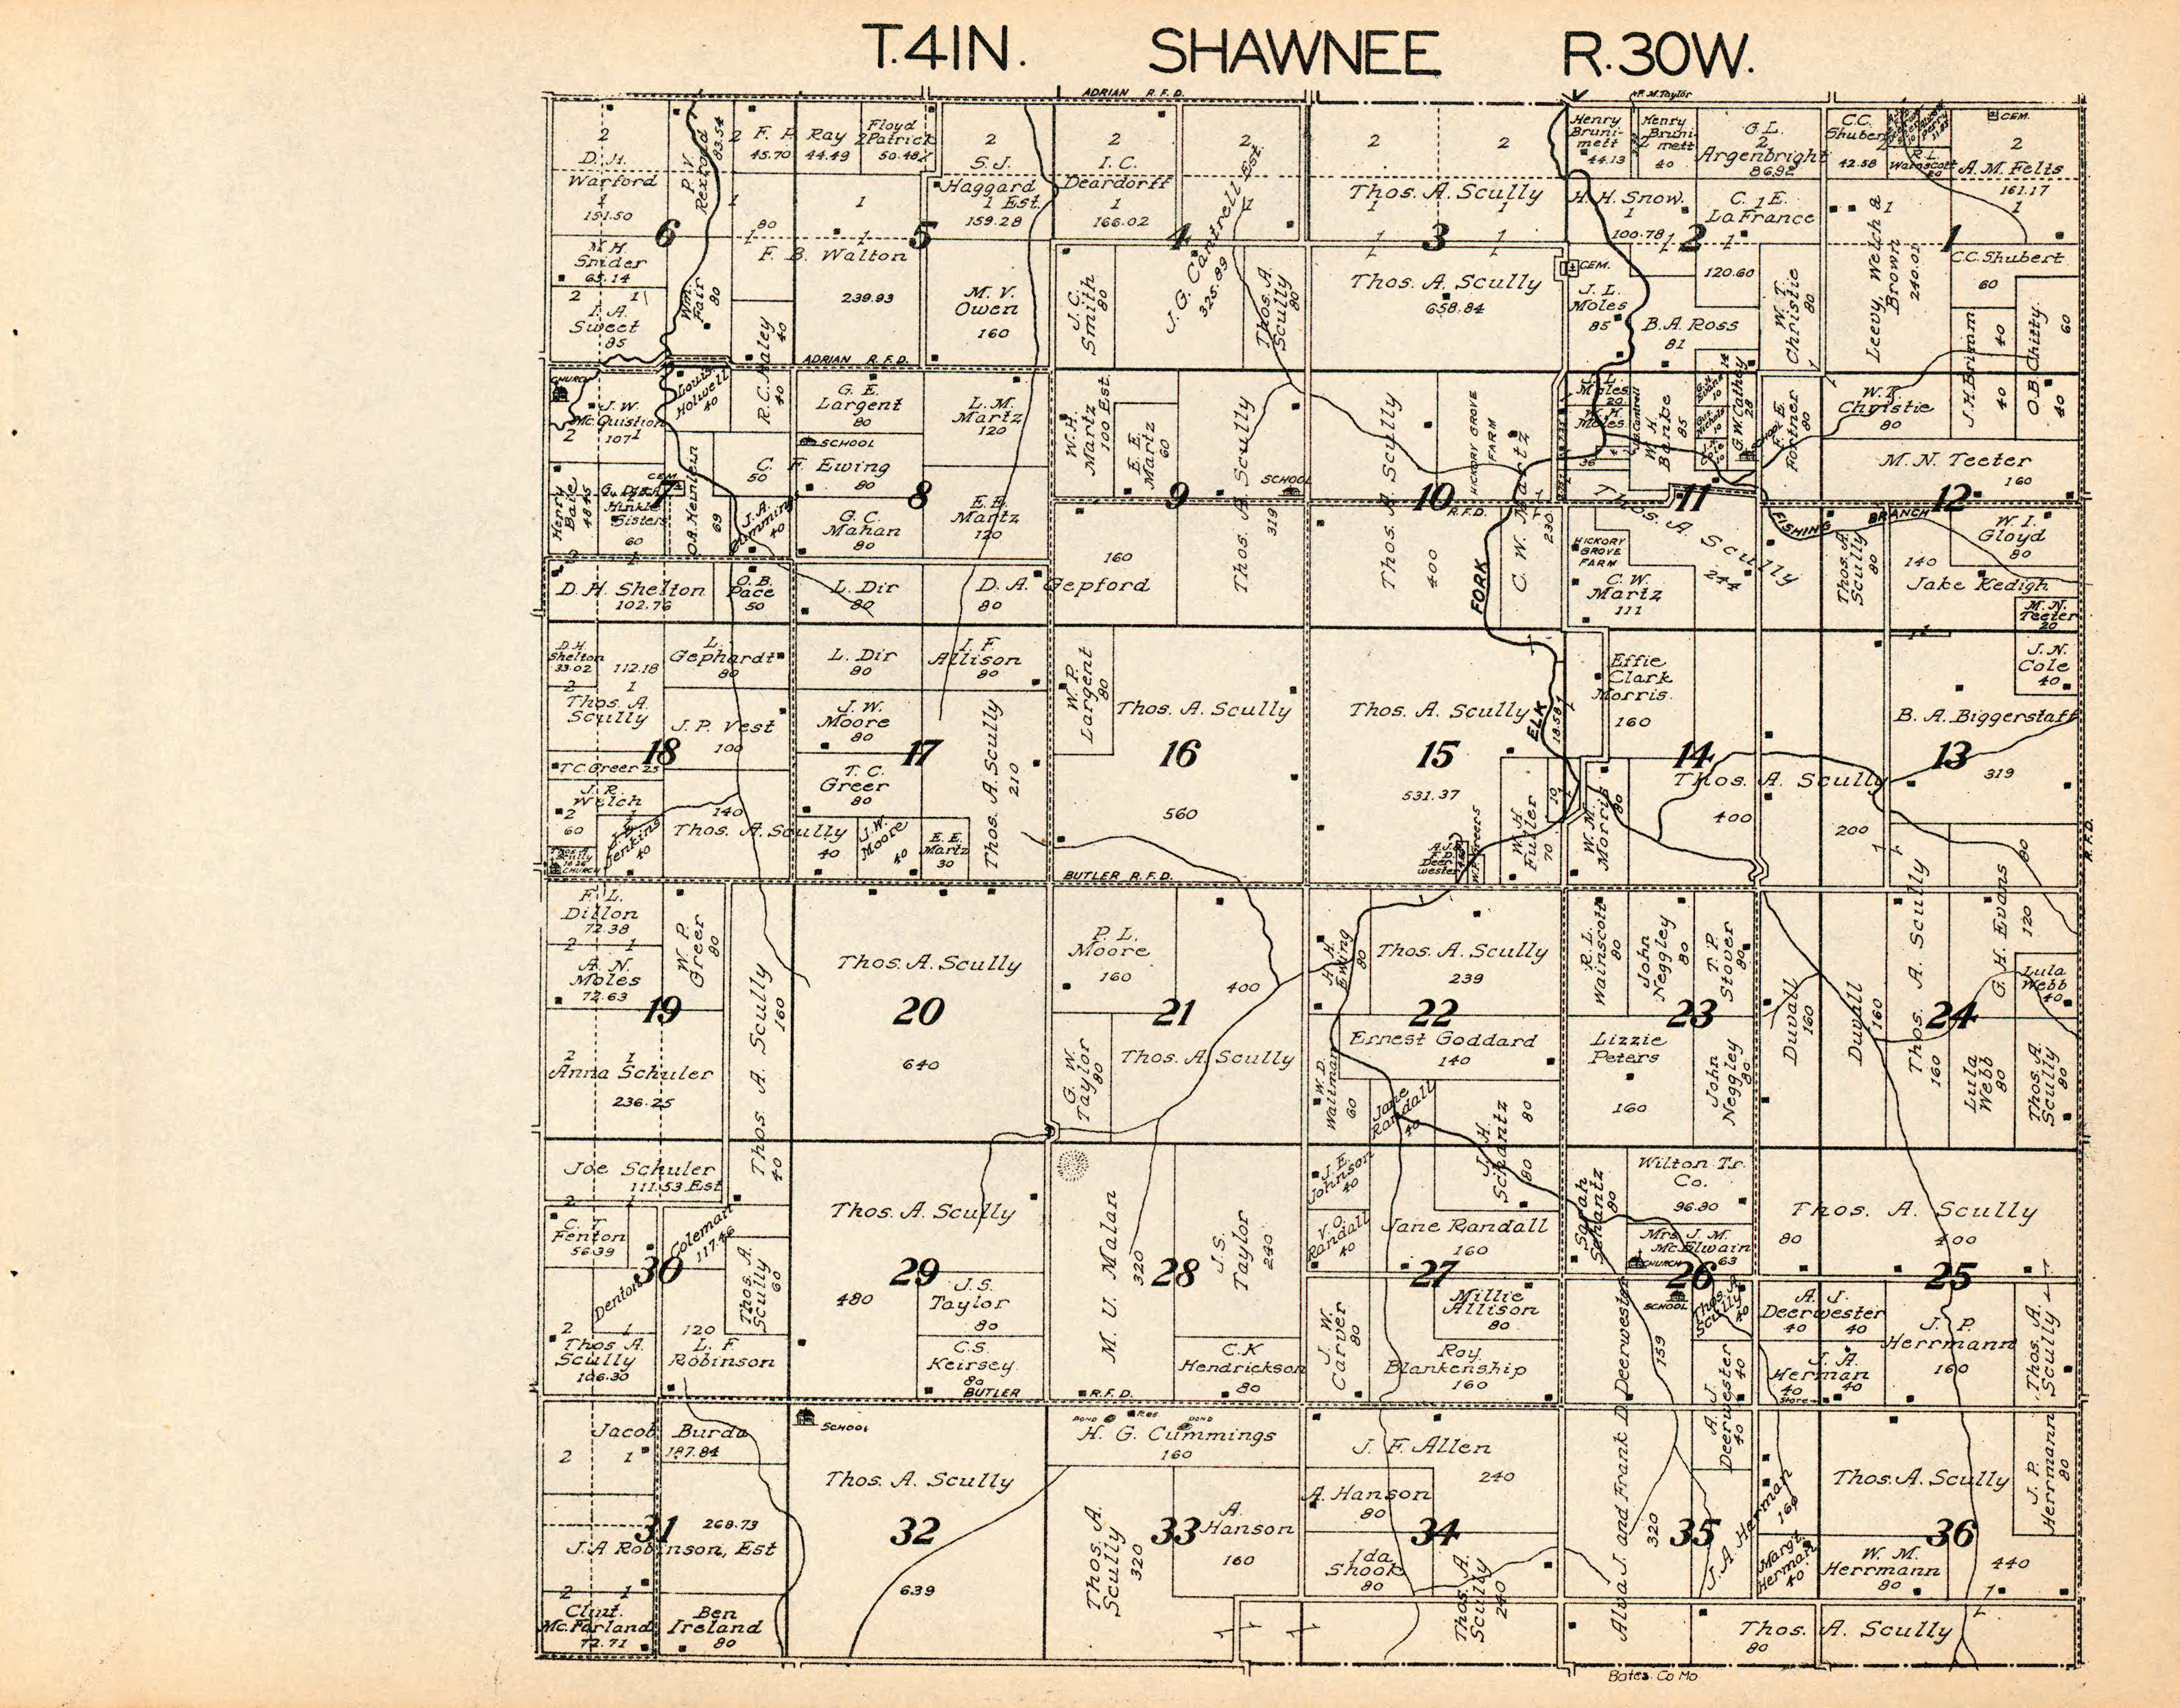 T.41N. SHAWNEE R.30W.
ADRIAN R.F.D.
F. M. Taylor
2
D. H.
Warford
1
151.50
P. V.
Rexroad
83.54
2 F. P. Ray
45.70 44.49
Floyd
Patrick
50.48
2
S. J.
Haggard
1 Est.
159.28
2
I. C.
Deardorff
1
166.02
J. G. Cantrell Est.
325.89
2 2
Thos. A. Scully
1 1
Henry
Bruni-
mett
44.13
Henry
Bruni-
mett
40
G. L.
2
Argenbright
86.92
C.C.
Shubert
42.58
R. L.
Wainscott
20
CEM.
2
A. M. Felts
161.17
1
M. H.
Snider
65.14
6
80
F. B. Walton
239.93
5
4
3
H. H. Snow
1
100.78
C. E.
La France
120.60
2
Leevy, Welch &
Brown
240.01
1
C.C. Shubert
60
2 1
I. A.
Sweet
85
Wm.
Fair
80
M. V.
Owen
160
J. C.
Smith
80
Thos. A.
Scully
80
Thos. A. Scully
658.84
CEM.
J. L.
Moles
85
B. A. Ross
81
W. T.
Christie
80
J. H. Brimm
40
40
O. B. Chitty
60
40
R. C. Maley
40
40
ADRIAN R.F.D.
CHURCH
J. W.
Mc Quistion
107
2
Louis
Holwell
40
G. E.
Largent
80
SCHOOL
L. M.
Martz
120
W. H.
Martz
100 Est.
E. E.
Martz
60
Thos. A. Scully
319
SCHOOL
Thos. A. Scully
400
HICKORY GROVE
FARM
C. W. Martz
230
Moles
20
W. H.
Moles
36
W. H.
Banke
85
G. W. Cathey
28
14
SCHOOL
F. E.
Fortner
80
W. T.
Christie
80
M. N. Teeter
160
CEM.
7
Henry
Baie
48.45
Hinkle
Sisters
60
O. A. Heinlein
69
C. F. Ewing
50 80
J. A.
Cummins
40
8
G. C.
Mahan
80
E. E.
Martz
120
9
10
R.F.D.
11
Thos. A. Scully
244
FISHING BRANCH
12
W. I.
Gloyd
80
HICKORY
GROVE
FARM
C. W.
Martz
111
Thos. A.
Scully
80
140
Jake Kedigh
M. N.
Teeter
20
D. H. Shelton
102.76
O. B.
Pace
50
L. Dir
80
D. A. Gepford
80
160
FORK
D. H.
Shelton
33.02
112.18
L.
Gephardt
80
L. Dir
80
I. F.
Allison
80
W. P.
Largent
80
Thos. A. Scully
16
560
Thos. A. Scully
15
531.37
ELK
18.58
Effie
Clark
Morris
160
J. N.
Cole
40
B. A. Biggerstaff
13
319
2 1
Thos. A.
Scully
J. P. Vest
100
18
J. W.
Moore
80
17
Thos. A. Scully
210
14
Thos. A. Scully
400
200
T. C. Greer 25
J. R.
Welch
2
60
J. E.
Jenkins
40
140
Thos. A. Scully
40
T. C.
Greer
80
J. W.
Moore
40
E. E.
Martz
30
CHURCH
W. H.
Fuller
70
10
W. M.
Morris
80
80
R.F.D.
BUTLER R.F.D.
F. L.
Dillon
72.38
2 1
A. N.
Moles
72.63
W. P.
Greer
80
19
Thos. A. Scully
160
40
Thos. A. Scully
20
640
P. L.
Moore
160
400
21
G. W.
Taylor
80
Thos. A. Scully
H. H.
Ewing
80
Thos. A. Scully
239
22
Ernest Goddard
140
W. D.
Wallman
60
Jane
Randall
40
R. L.
Wainscott
80
John
Neggley
80
T. P.
Stover
80
23
Lizzie
Peters
160
John
Neggley
80
Duvall
160
Duvall
160
Thos. A. Scully
160
24
G. H. Evans
120
Lula
Webb
40
Lula
Webb
80
Thos. A.
Scully
80
2 1
Anna Schuler
236.25
Joe Schuler
111.53 Est.
2 1
C. T.
Fenton
56.39
Denton Coleman
117.46
30
Thos. A.
Scully
60
Thos. A. Scully
29
480
J. S.
Taylor
80
C. S.
Keirsey
80
M. U. Malan
320
28
J. S.
Taylor
240
C. K.
Hendrickson
80
J. E.
Johnson
40
V. O.
Randall
40
J. H.
Schantz
80
80
Jane Randall
160
27
J. W.
Carver
80
Millie
Allison
80
Roy
Blankenship
160
Sarah
Schantz
80
Wilton Tr.
Co.
96.80
Mrs. J. M.
Mc Elwain
63
CHURCH
26
SCHOOL
Thos. A.
Scully
40
Thos. A. Scully
80 400
25
A. J.
Deerwester
40 40
J. A.
Herman
40 40
Store
J. P.
Herrmann
160
Thos. A.
Scully
2 1
Thos. A.
Scully
106.30
120
L. F.
Robinson
BUTLER R.F.D.
Jacob Burda
2 1 187.84
SCHOOL
Thos. A. Scully
32
639
POND RES POND
H. G. Cummings
160
Thos. A.
Scully
320
33
A.
Hanson
160
J. F. Allen
240
A. Hanson
80
34
Ida
Shook
80
Thos. A.
Scully
240
Alva J. and Frank D. Deerwester
159
320
35
A. J.
Deerwester
40
40
J. A. Herman
160
Margt
Herman
40
Thos. A. Scully
36
J. P.
Herrmann
80
W. M.
Herrmann
80
440
31
268.73
J. A Robinson, Est
2 1
Clint.
Mc. Farland
72.71
Ben
Ireland
80
Thos. A. Scully
80
Bates Co Mo.